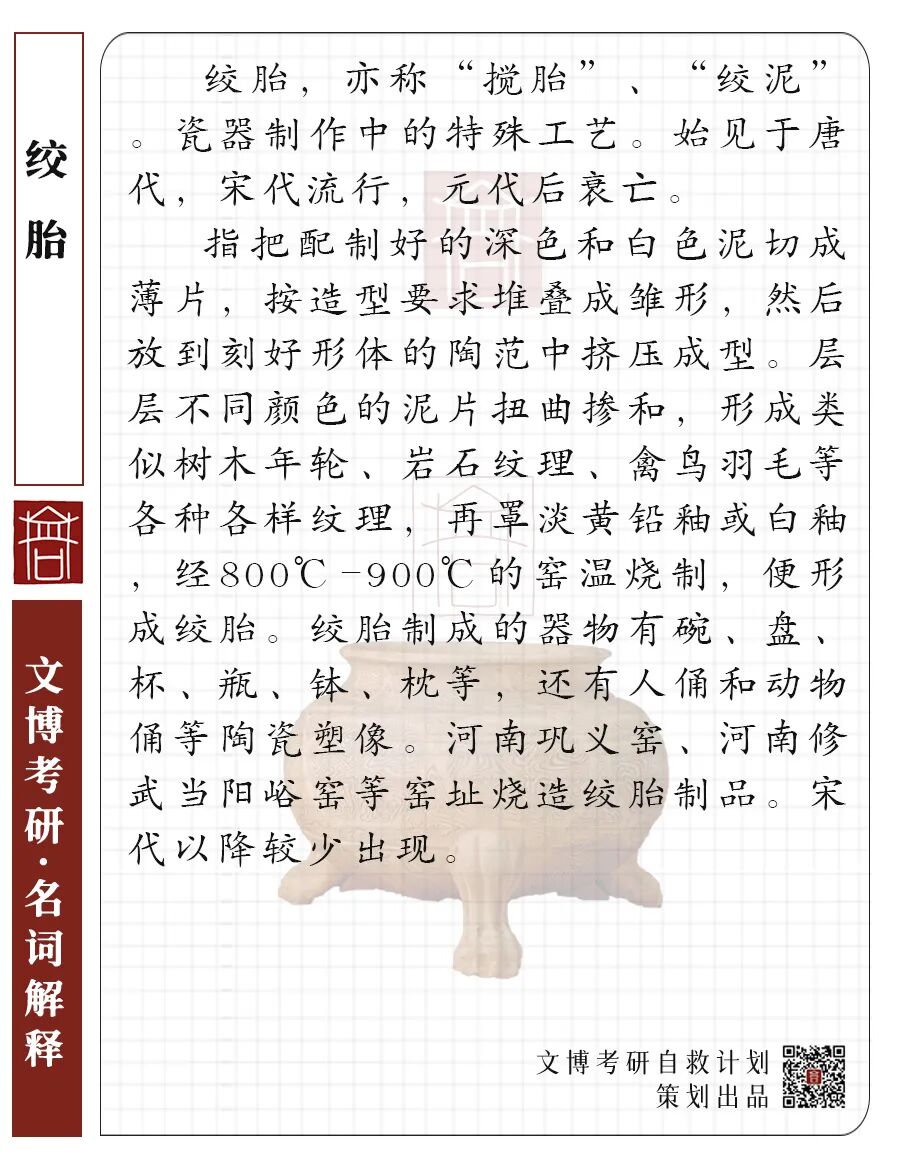 绞胎
文博考研·名词解释
绞胎，亦称“搅胎”、“绞泥”
。瓷器制作中的特殊工艺。始见于唐
代，宋代流行，元代后衰亡。
指把配制好的深色和白色泥切成
薄片，按造型要求堆叠成雏形，然后
放到刻好形体的陶范中挤压成型。层
层不同颜色的泥片扭曲掺和，形成类
似树木年轮、岩石纹理、禽鸟羽毛等
各种各样纹理，再罩淡黄铅釉或白釉
，经800℃-900℃的窑温烧制，便形
成绞胎。绞胎制成的器物有碗、盘、
杯、瓶、钵、枕等，还有人俑和动物
俑等陶瓷塑像。河南巩义窑、河南修
武当阳峪窑等窑址烧造绞胎制品。宋
代以降较少出现。
文博考研自救计划
策划出品